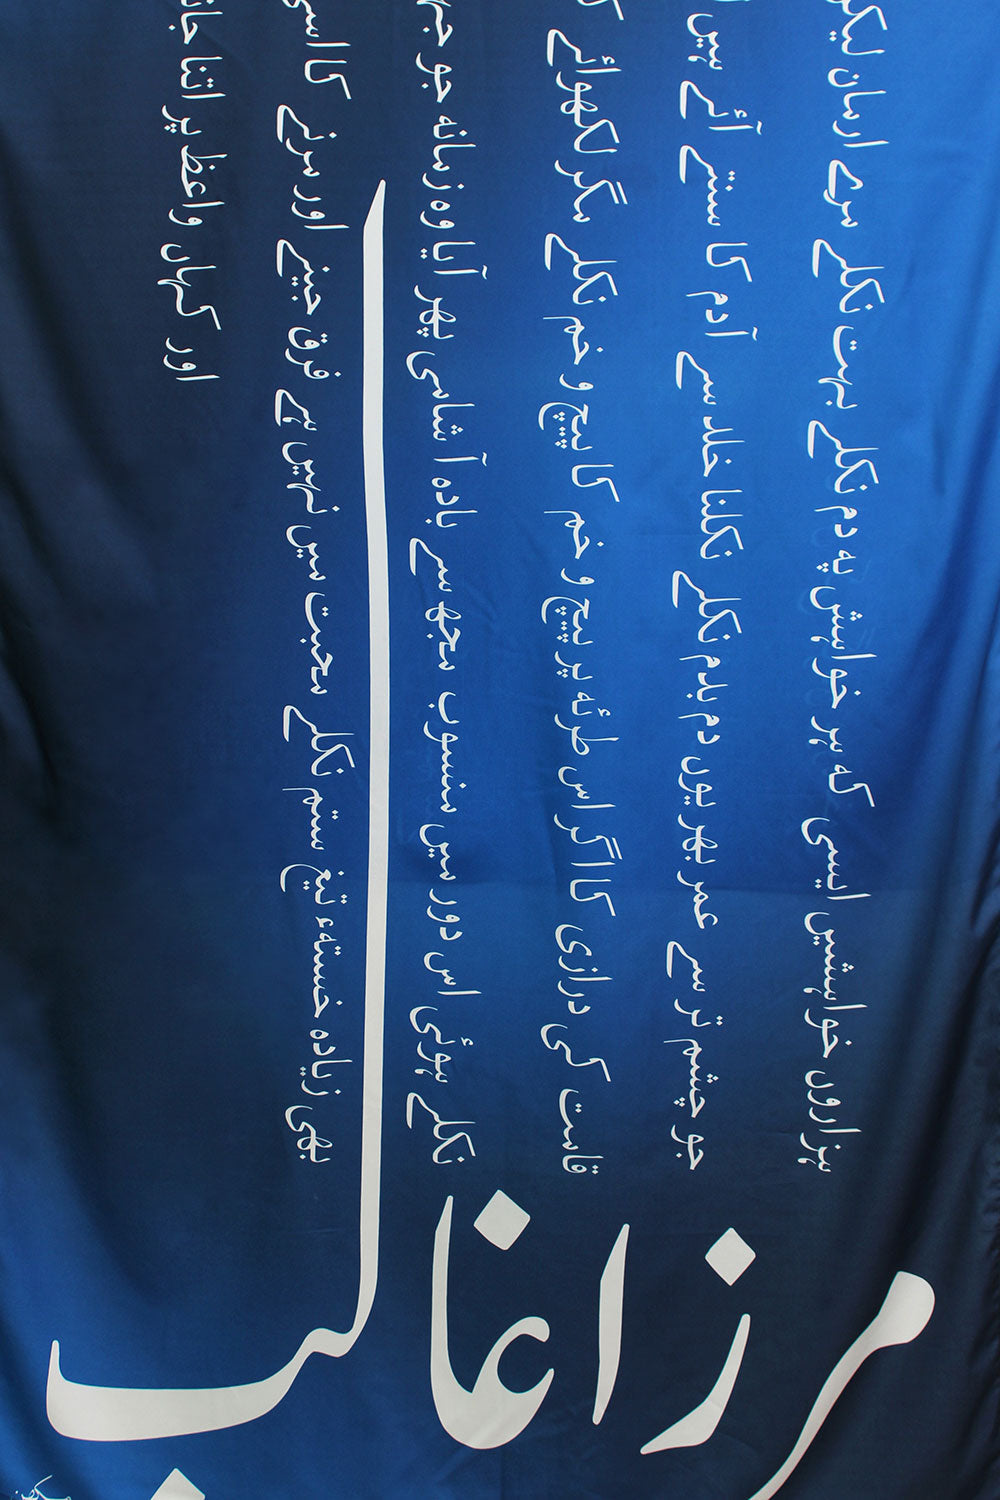 ہزاروں خواہشیں ایسی کہ ہر خواہش پہ دم نکلے بہت نکلے مرے ارمان
جو چشم تر سے عمر بھر یوں دم بدم نکلے نکلنا خلد سے آدم کا سنتے آئے ہیں
قامت کی درازی کا اگر اس طرئہ پر پیچ و خم کا پیچ و خم نکلے مگر لکھوائے
نکلے ہوئی اس دور میں منسوب مجھ سے بادہ آ شامی پھر آیا وہ زمانہ جو
بھی زیادہ خستہء تیغ ستم نکلے محبت میں نہیں ہے فرق جینے اور مرنے کا اسی
اور کہاں واعظ پر اتنا
مرزا غالب